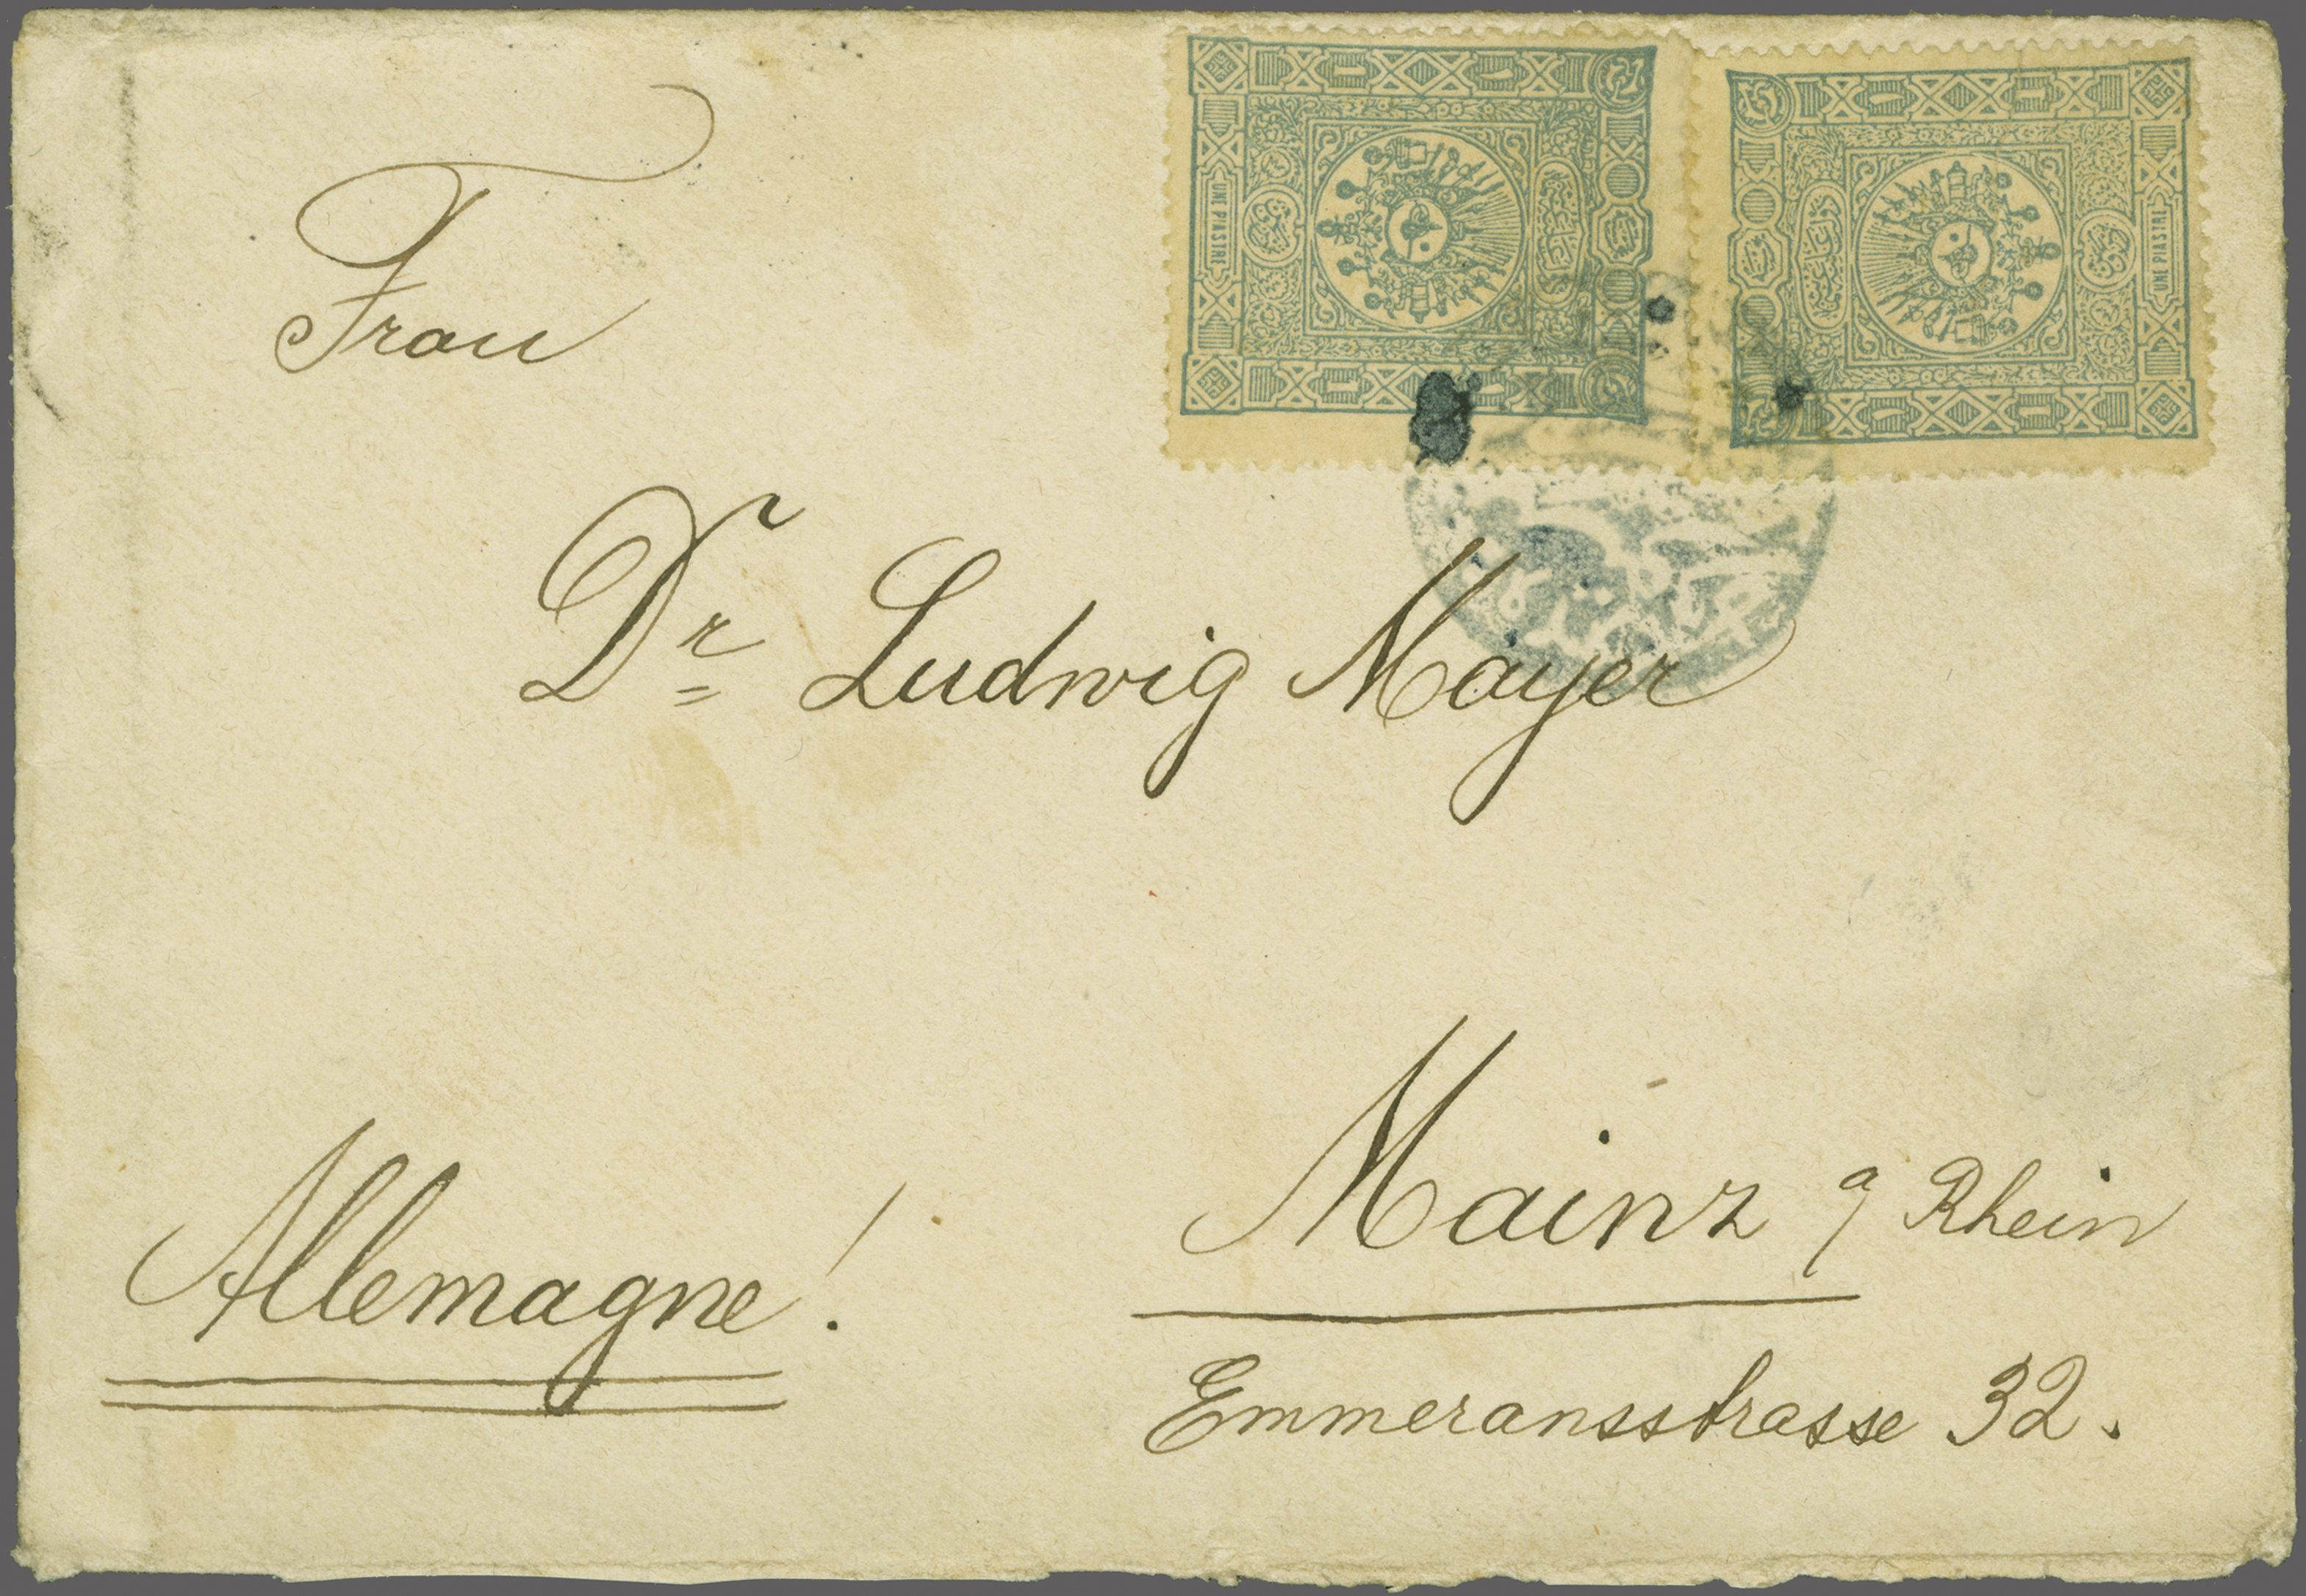 UNE PIASTRE
UNE PIASTRE
Frau
Dr Ludwig Mayer
Mainz a/Rhein
Allemagne!
Emmeransstrasse 32.